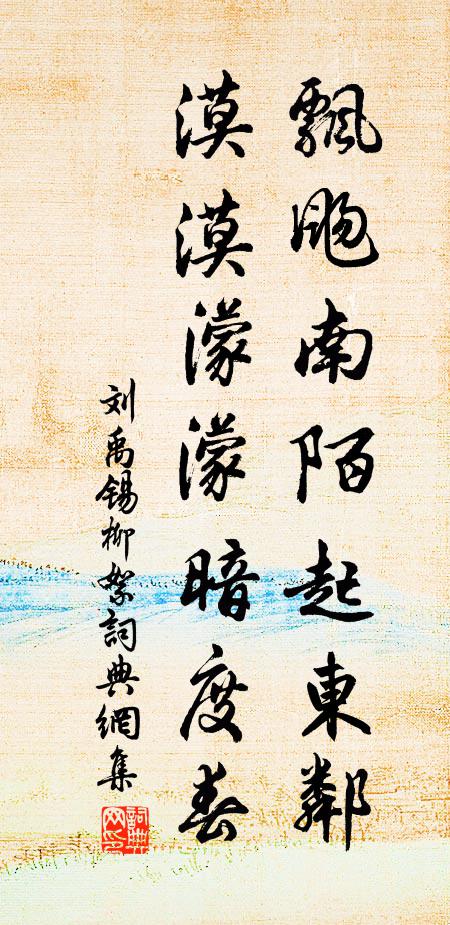 飄飏南陌起東鄰
漠漠濛濛暗度春
刘禹锡柳絮詞典網集
詞典网印